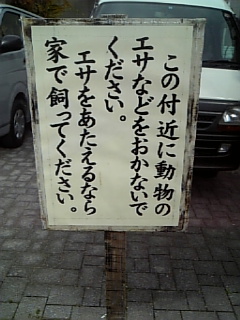 この付近に動物の
エサなどをおかないで
ください。
エサをあたえるなら
家で飼ってください。